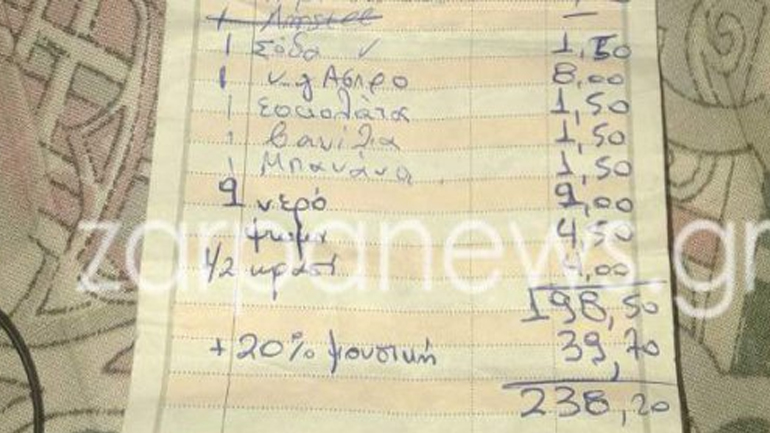 1 Amstel —
1 Σόδα ✓ 1,50
1 Άσπρο 8,00
1 σοκολάτα 1,50
1 βανίλια 1,50
1 Μπανάνα 1,50
9 νερό 9,00
ψωμι 4,50
1/2 κρασί 4,00
198,50
+ 20% μουσική 39,70
238,20
zarpanews.gr